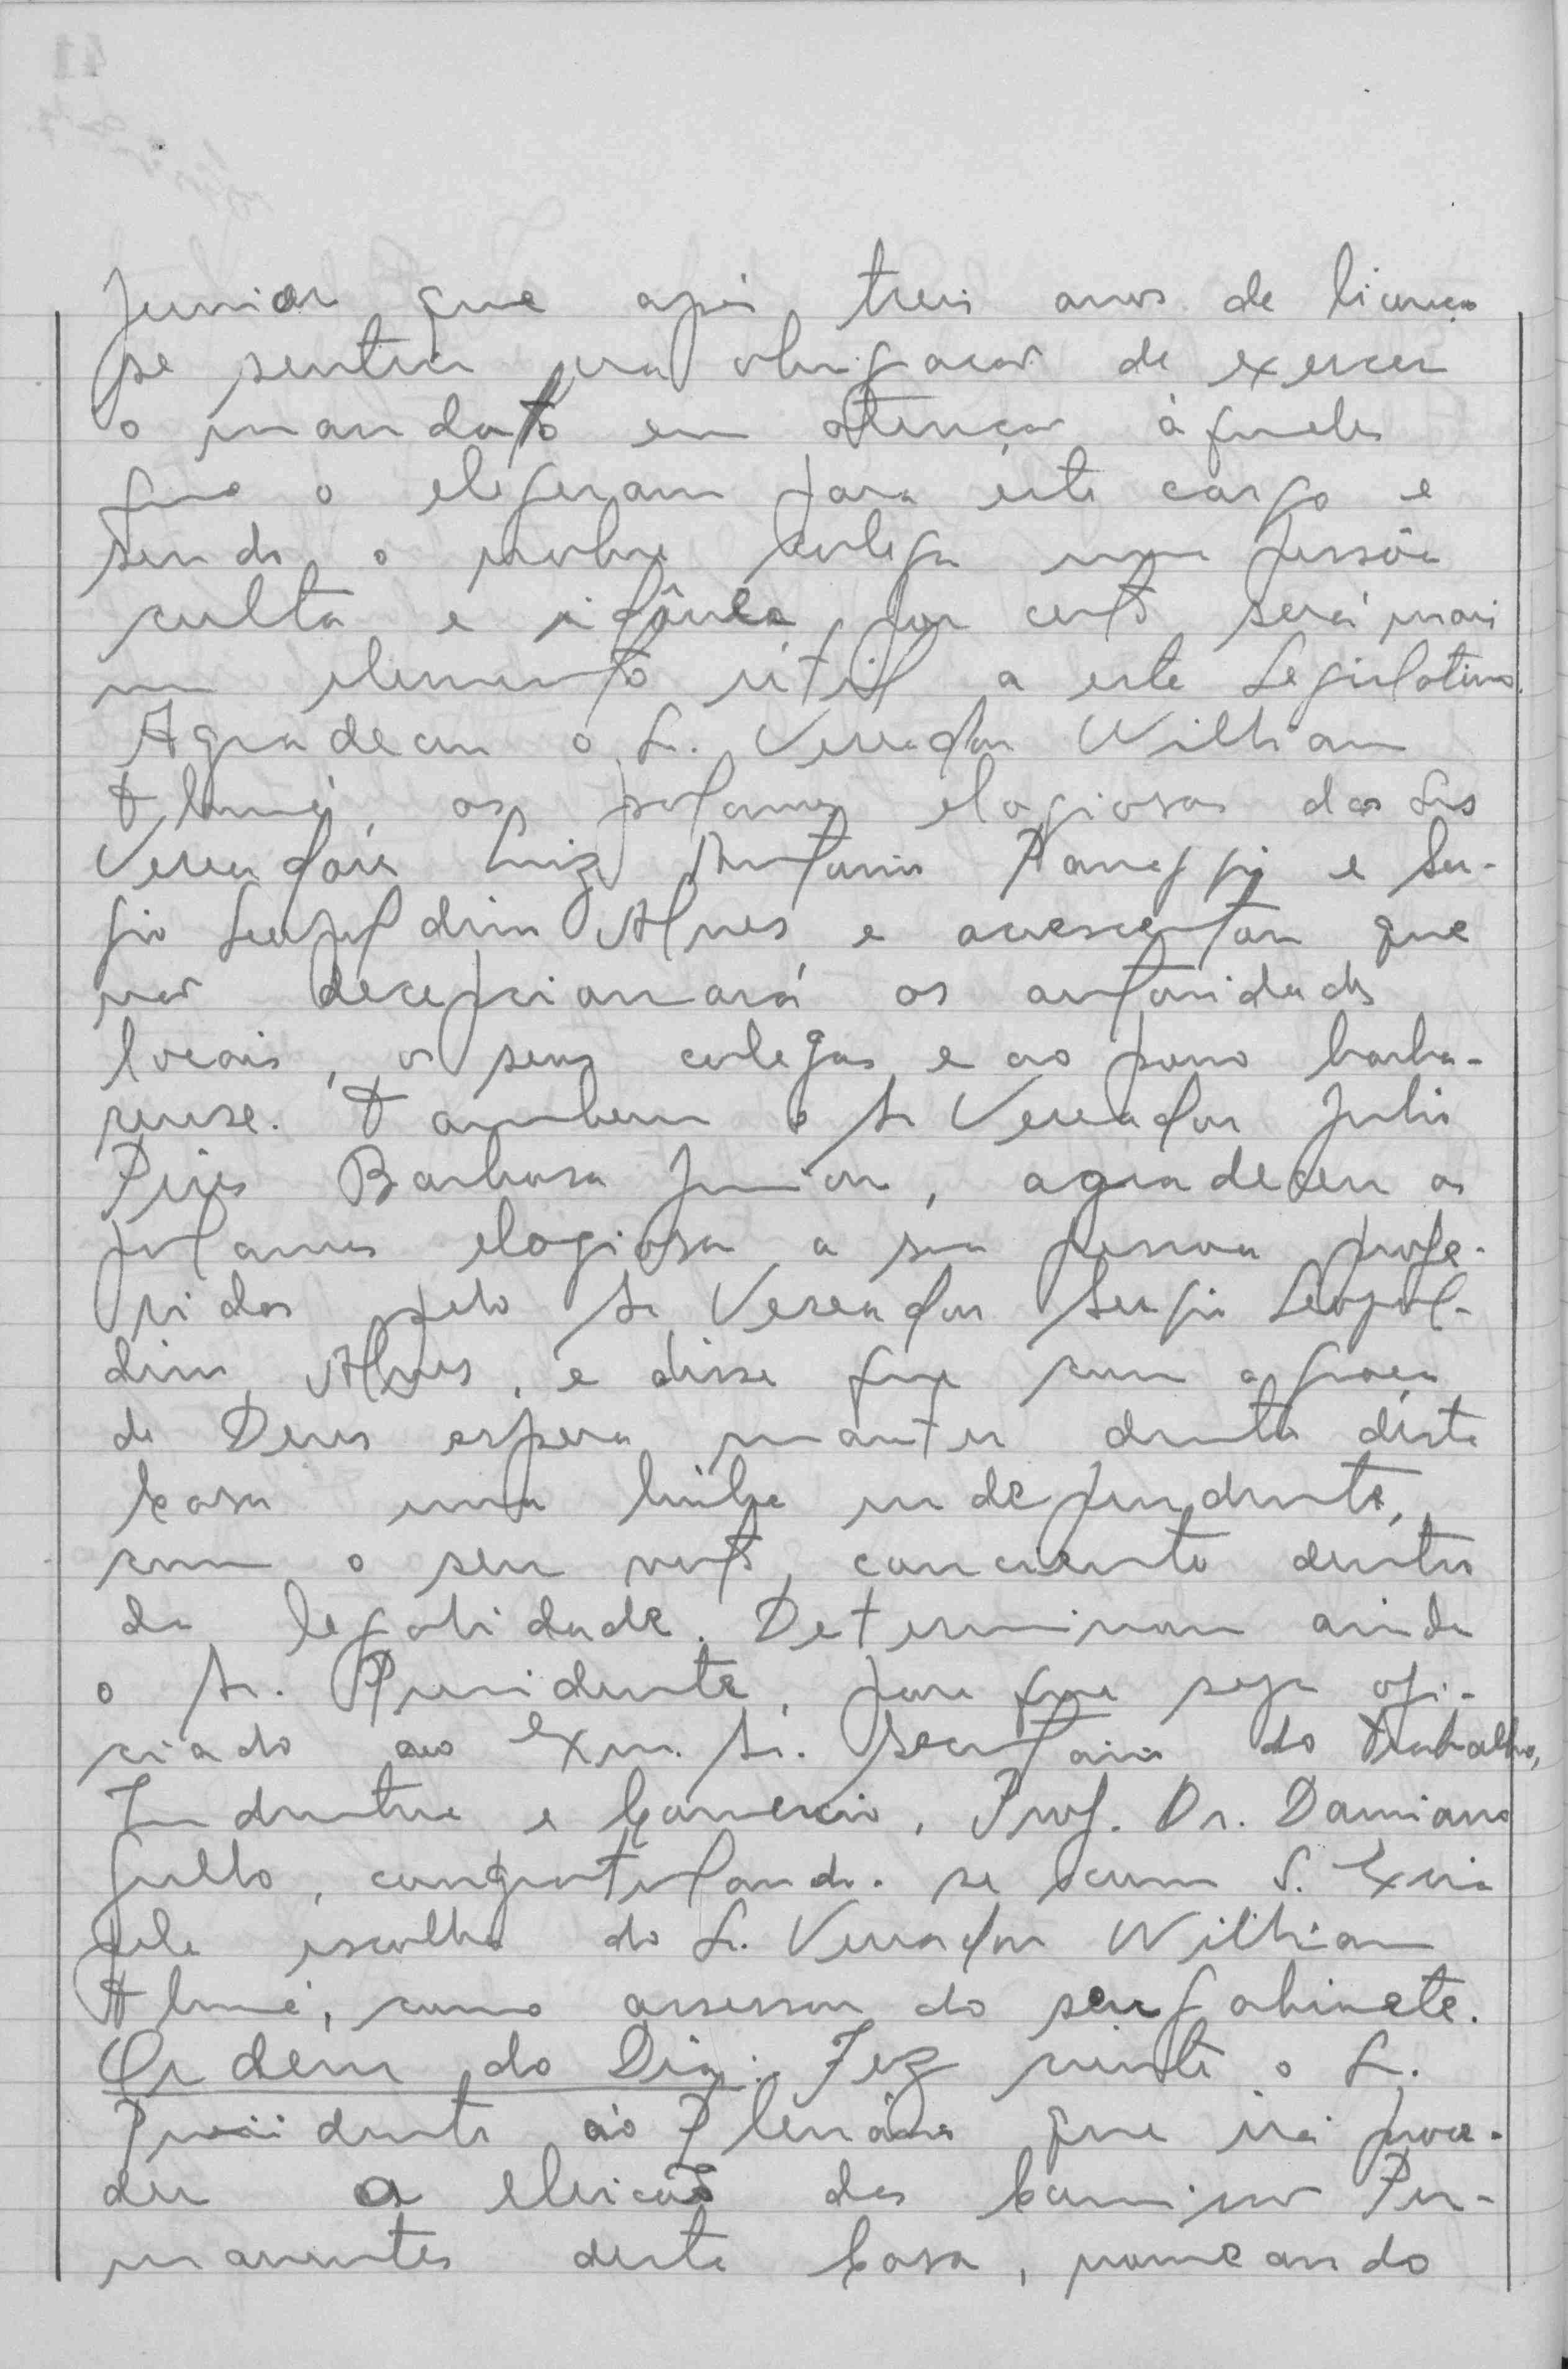 Junior que após treis anos de licença
se sentiu na obrigação de exercer
o mandato em atenção àqueles
que o elegeram para êste cargo e
sendo o nobre colega uma pessôa
culta e idônea, por certo será mais
um elemento útil a este Legislativo.
Agradeceu o Sr. Vereador Willian
as palavras elogiosas dos Srs
Vereadores Luiz Antonio Panaggio e Ser-
gio Leopoldino Alves, e acrescentou que
não decepcionará as autoridades
locais, os seus colegas e ao povo barba-
rense. Tambem o Sr Vereador Julio
Pires Barbosa Junior, agradeceu as
palavras elogiosa a sua pessoa profe-
ridas pelo Sr Vereador Sergio Leopol-
dino Alves, e disse que com a graça
de Deus espera manter dentro deste
Casa uma linha independente,
com o seu voto conciente dentro
da legalidade. Determinou ainda
o Sr. Presidente, para que seja ofi-
ciado ao Exmo. Sr. Secretario do Trabalho,
Industria e Comercio, Prof. Dr. Damiano
Gullo, congratulando-se com S. Excia
pela escolha do Sr. Vereador Willian
como assessor do seu gabinete.
Ordem do Dia: Fez ciente o Sr.
Presidente ao Plenário que irá proce-
der a eleição das Comissão Per-
manentes desta Casa, nomeando